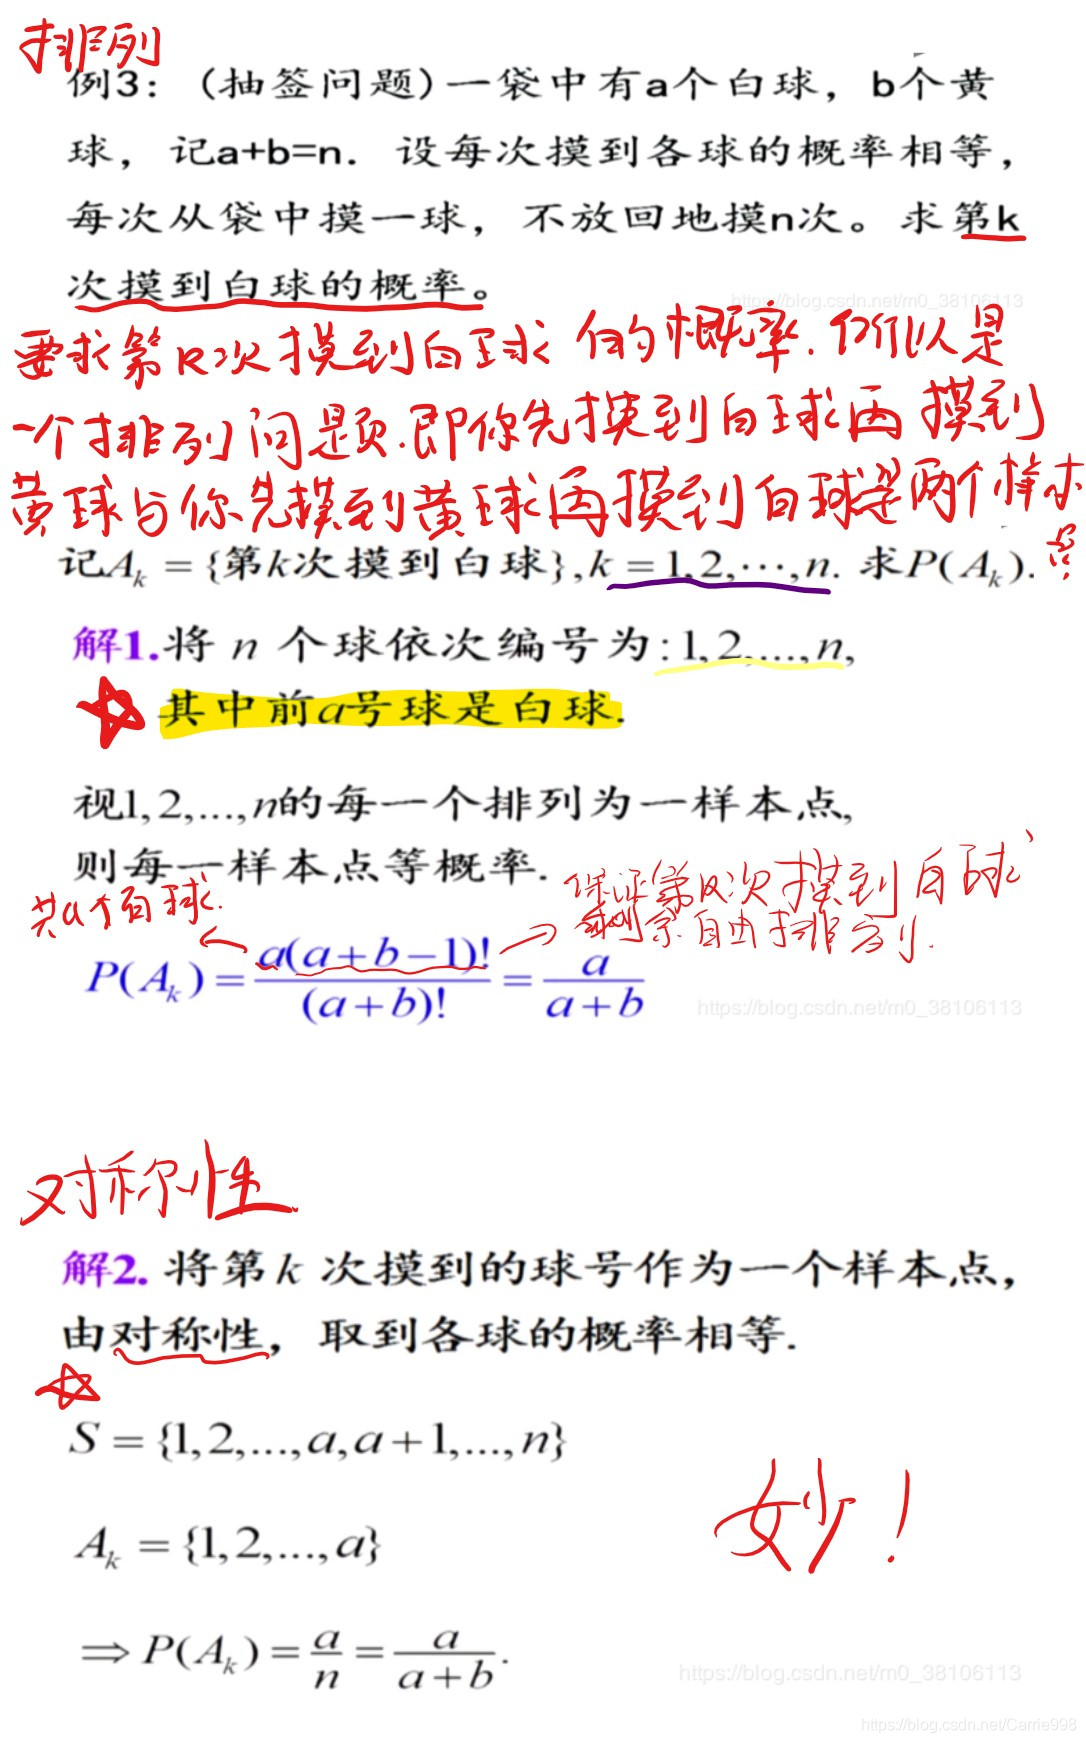 排列
例3：（抽签问题）一袋中有a个白球，b个黄
球，记a+b=n．设每次摸到各球的概率相等，
每次从袋中摸一球，不放回地摸n次。求第k
次摸到白球的概率。
https://blog.csdn.net/m0_38106113
要求第K次摸到白球的概率.所以是
一个排列问题.即你先摸到白球再摸到
黄球与你先摸到黄球再摸到白球是两个样本
点.
记Aₖ = {第k次摸到白球}, k = 1,2,⋯,n. 求P(Aₖ).
解1.将 n 个球依次编号为:1,2,...,n,
其中前a号球是白球.
视1,2,...,n的每一个排列为一样本点,
则每一样本点等概率.
共a个白球.
保证第K次摸到白球
自由排列.
P(Aₖ) = a(a+b−1)!/(a+b)! = a/(a+b)
https://blog.csdn.net/m0_38106113
对称性
解2. 将第k 次摸到的球号作为一个样本点，
由对称性，取到各球的概率相等.
S = {1,2,...,a,a+1,...,n}
Aₖ = {1,2,...,a}
妙！
⇒ P(Aₖ) = a/n = a/(a+b).
https://blog.csdn.net/m0_38106113
https://blog.csdn.net/Carrie998